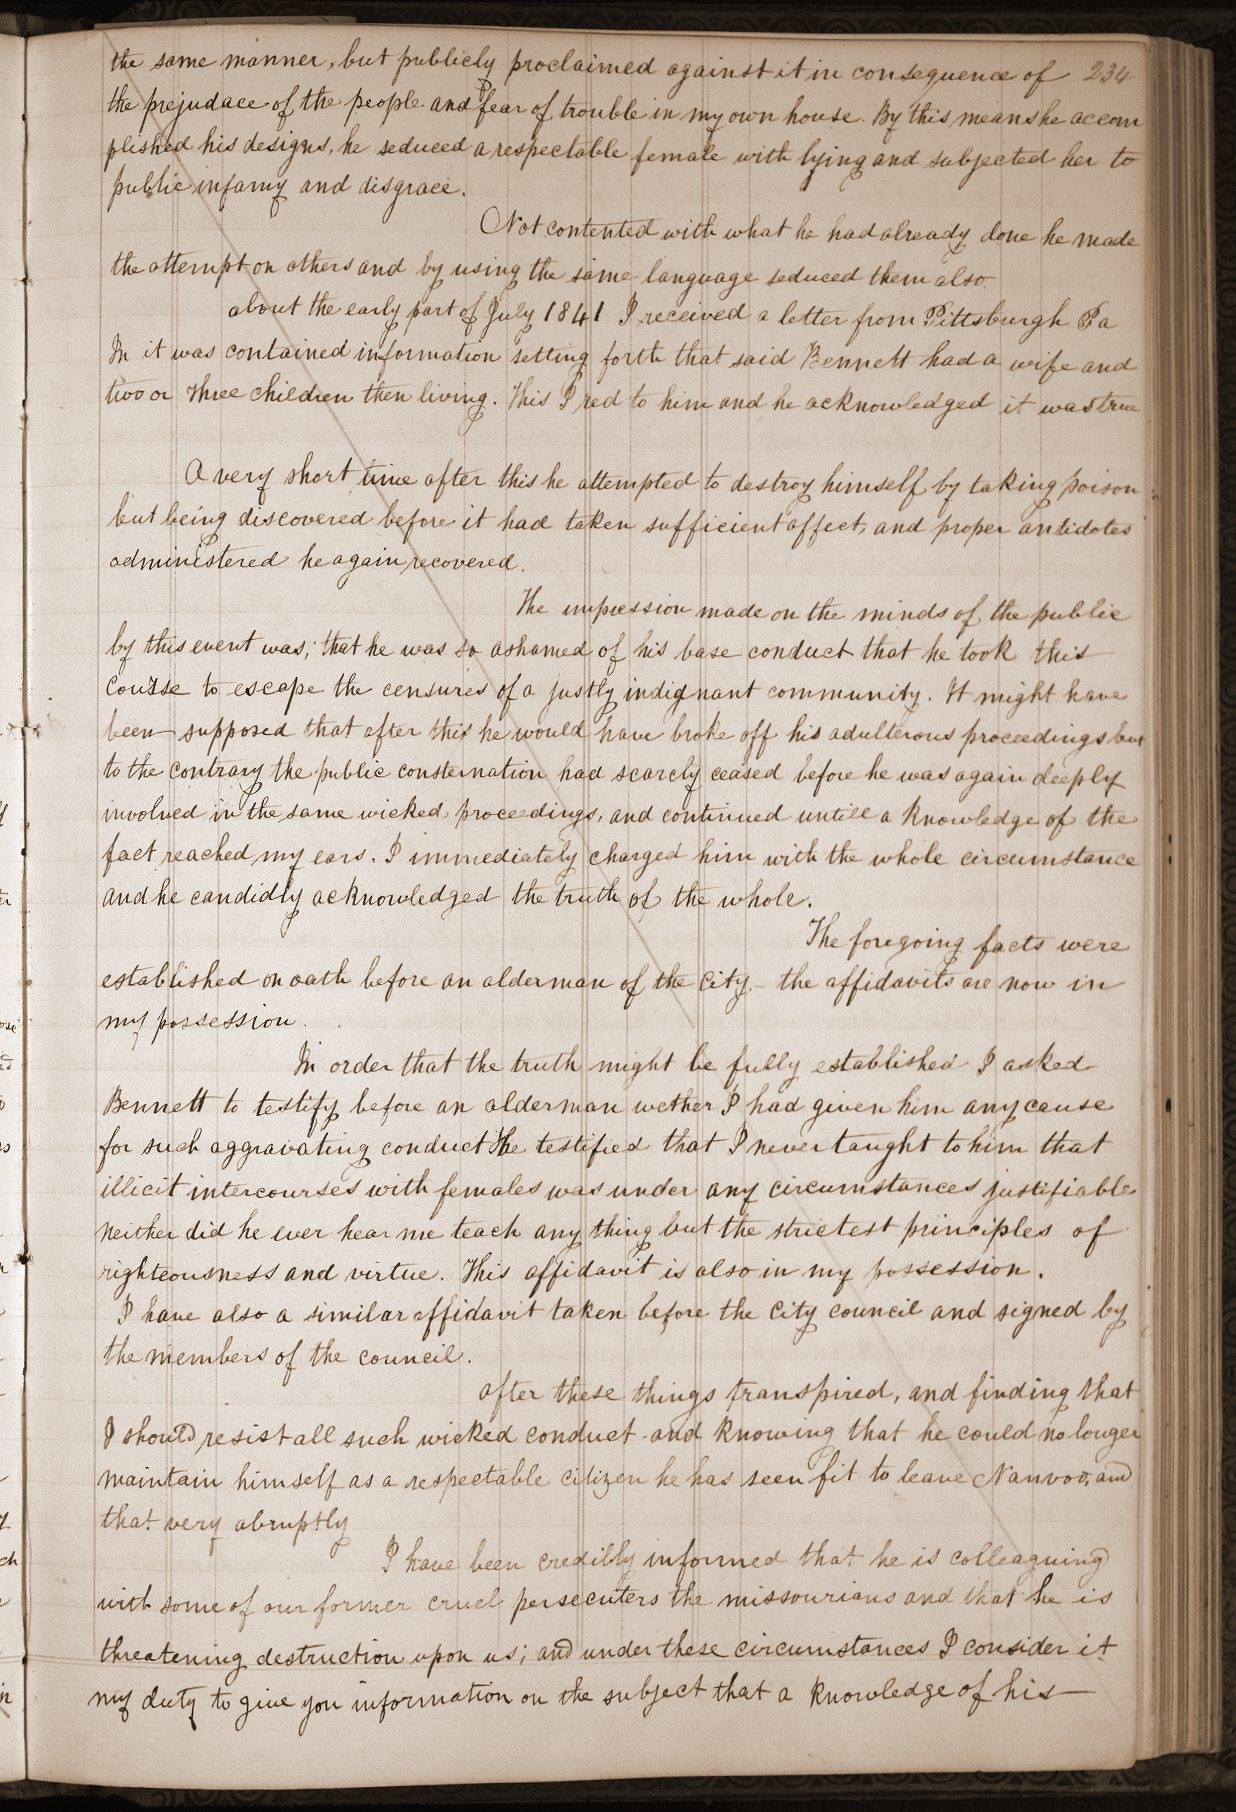 the same manner, but publicly proclaimed against it in consequence of 234
the prejudace of the people and fear of trouble in my own house. By this means he accom
plished his designs, he seduced a respectable female with lying and subjected her to
public infamy and disgrace.
Not contented with what he had already done he made
the attempt on others and by using the same language seduced them also.
about the early part of July 1841 I received a letter from Pittsburgh Pa
In it was contained information setting forth that said Bennett had a wife and
two or three children then living. This I red to him and he acknowledged it was true
A very short time after this he attempted to destroy himself by taking poison
but being discovered before it had taken sufficient affect, and proper antidotes
administered he again recovered.
The impression made on the minds of the public
by this event was; that he was so ashamed of his base conduct that he took this
course to escape the censures of a justly indignant community. It might have
been supposed that after this he would have broke off his adulterous proceedings but
to the contrary the public consternation had scarcly ceased before he was again deeply
involved in the same wicked proceedings, and continued untill a knowledge of the
fact reached my ears. I immediately charged him with the whole circumstance
and he candidly acknowledged the truth of the whole.
The foregoing facts were
established on oath before an alderman of the city. the affidavits are now in
my possession.
In order that the truth might be fully established I asked
Bennett to testify before an alderman wether I had given him any cause
for such aggravating conduct He testified that I never taught to him that
illicit intercourses with females was under any circumstances justifiable
neither did he ever hear me teach any thing but the strictest principles of
righteousness and virtue. This affidavit is also in my possession.
I have also a similar affidavit taken before the City council and signed by
the members of the council.
after these things transpired, and finding that
I should resist all such wicked conduct and knowing that he could no longer
maintain himself as a respectable citizen he has seen fit to leave Nauvoo, and
that very abruptly
I have been credibly informed that he is colleaguing
with some of our former cruel persecuters the missourians and that he is
threatening destruction upon us; and under these circumstances I consider it
my duty to give you information on the subject that a knowledge of his